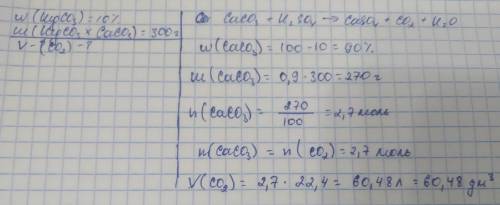 w(MgCO₃) = 10%
m(MgCO₃ × CaCO₃) = 300 г
V - ? (CO₂) - ?
CaCO₃ + H₂SO₄ → CaSO₄ + CO₂ + H₂O
w(CaCO₃) = 100 - 10 = 90%
m(CaCO₃) = 0,9 · 300 = 270 г
n(CaCO₃) = 270/100 = 2,7 моль
n(CaCO₃) = n(CO₂) = 2,7 моль
V(CO₂) = 2,7 · 22,4 = 60,48 л = 60,48 дм³